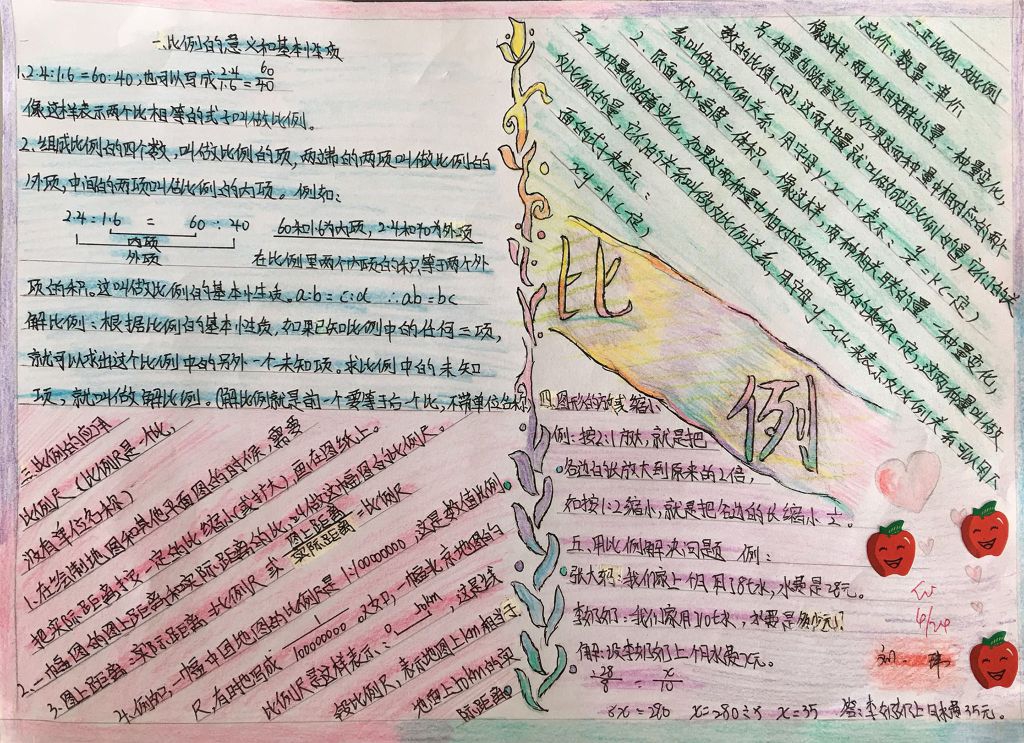 一.比例的意义和基本性质
1.2.4:1.6=60:40;也可以写成2.4/1.6=60/40
像这样表示两个比相等的式子叫做比例。
2.组成比例的四个数,叫做比例的项,两端的两项叫做比例的
外项,中间的两项叫做比例的内项。例如:
2.4:1.6 = 60:40 60和1.6为内项,2.4和40为外项
内项
外项
在比例里两个内项的积等于两个外
项的积。这叫做比例的基本性质。a:b=c:d ∴ab=bc
解比例:根据比例的基本性质,如果已知比例中的任何三项,
就可以求出这个比例中的另外一个未知项。求比例中的未知
项,就叫做解比例。(解比例就是前一个要等于后一个比,不带单位名称)
二.正比例,反比例
1.总价:数量=单价
像这样,两种相关联的量,一种量变化,
另一种量也随着变化,如果这两种量中相对应的两个
数的比值(一定),这两种量就叫做成正比例的量,它们的关
系叫做正比例关系,用字母y、x、k表示:y/x=k(一定)
2.底面积×高度=体积,像这样,两种相关联的量,一种量变化,
另一种量也随着变化,如果这两种量中相对应的两个数的乘积(一定),这两种量叫做
反比例的量,它们的关系叫做反比例关系,用字母y、x、k来表示反比例关系可以用
面的式子来表示:
xy=k(一定)
比例
三.比例的应用
比例尺(比例尺是一个比,
没有单位名称)
1.在绘制地图和其他平面图的时候,需要
把实际距离按一定的比缩小(或扩大),画在图纸上。
2.一幅图的图上距离和实际距离的比,叫做这幅图的比例尺。
3.图上距离:实际距离=比例尺或图上距离/实际距离=比例尺
4.例如,一幅中国地图的比例尺是1:100000000,这是数值比例
尺,有时也写成1/100000000。又如,一幅北京地图的
比例尺是这样表示:0 10km,这是线
段比例尺,表示地图上1cm相当于
地面上10km的实
际距离。
四.图形的放或缩小
例:按2:1放大,就是把
各边的长放大到原来的2倍,
如按1:2缩小,就是把各边的长缩小1/2。
五.用比例解决问题 例:
张大妈:我们家上个月用了8t水,水费是28元。
李奶奶:我们家用了10t水,水费是多少元?
解:设李奶奶上个月水费x元。
28/8=x/10
8x=280 x=280÷8 x=35 答:李奶奶上月水费35元。